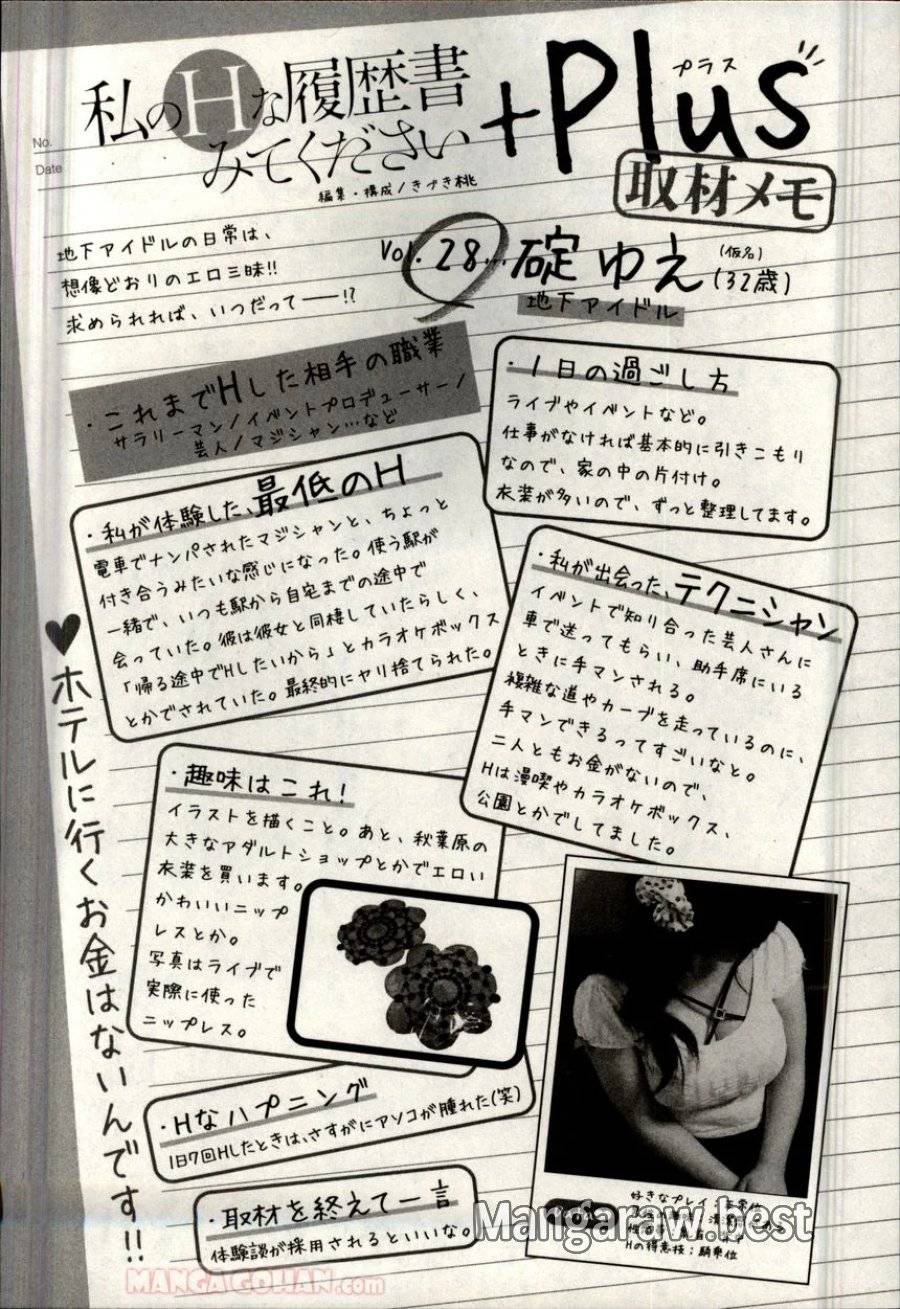 No.
Date
私のHな履歴書
みてください
+Plus
プラス
編集・構成/きづき桃
取材メモ
地下アイドルの日常は、
想像どおりのエロ三昧!!
求められれば、いつだって――!?
Vol.28…碇ゆえ(仮名)(32歳)
地下アイドル
・これまでHした相手の職業
サラリーマン/イベントプロデューサー/
芸人/マジシャン…など
・1日の過ごし方
ライブやイベントなど。
仕事がなければ基本的に引きこもり
なので、家の中の片付け。
衣装が多いので、ずっと整理してます。
・私が体験した、最低のH
電車でナンパされたマジシャンと、ちょっと
付き合うみたいな感じになった。使う駅が
一緒で、いつも駅から自宅までの途中で
会っていた。彼は彼女と同棲していたらしく、
「帰る途中でHしたいから」とカラオケボックス
とかでされていた。最終的にヤリ捨てられた。
・私が出会った、テクニシャン
イベントで知り合った芸人さんに
車で送ってもらい、助手席にいる
ときに手マンされる。
複雑な道やカーブを走っているのに、
手マンできるってすごいなと。
二人ともお金がないので、
Hは漫喫やカラオケボックス、
公園とかでしてました。
♥ホテルに行くお金はないんです!!
・趣味はこれ!
イラストを描くこと。あと、秋葉原の
大きなアダルトショップとかでエロい
衣装を買います。
かわいいニップ
レスとか。
写真はライブで
実際に使った
ニップレス。
・Hなハプニング
1日7回Hしたときは、さすがにアソコが腫れた(笑)
・取材を終えて一言
体験談が採用されるといいな。
好きなプレイ:正常位
Hの得意技:騎乗位
Mangaraw.best
MANGAGOHAN.com